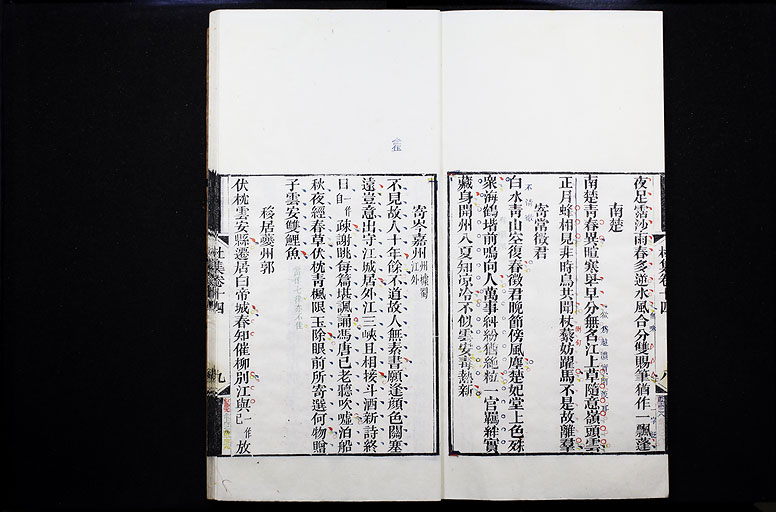 夜足霑沙雨春多逆水風合分雙賜筆猶作一飄蓬
南楚
南楚青春異暄寒早早分無名江上草隨意嶺頭雲
正月蜂相見非時鳥共聞杖藜妨躍馬不是故離羣
寄常徵君
白水青山空復春徵君晚節傍風塵楚妃堂上色殊
衆海鶴堦前鳴向人萬事糾紛猶絶粒一官羈絆實
藏身開州入夏知涼冷不似雲安毒熱新
杜集卷十四
八
寄岑嘉州 州據蜀江外
不見故人十年餘不道故人無素書願逢顔色關塞
遠豈意出守江城居外江三峽且相接斗酒新詩終
日一作自疎謝朓每篇堪諷誦馮唐已老聽吹噓泊船
秋夜經春草伏枕青楓限玉除眼前所寄選何物贈
子雲安雙鯉魚
移居夔州郭
伏枕雲安縣遷居白帝城春知催柳別江與一作已放
杜集卷十四
九